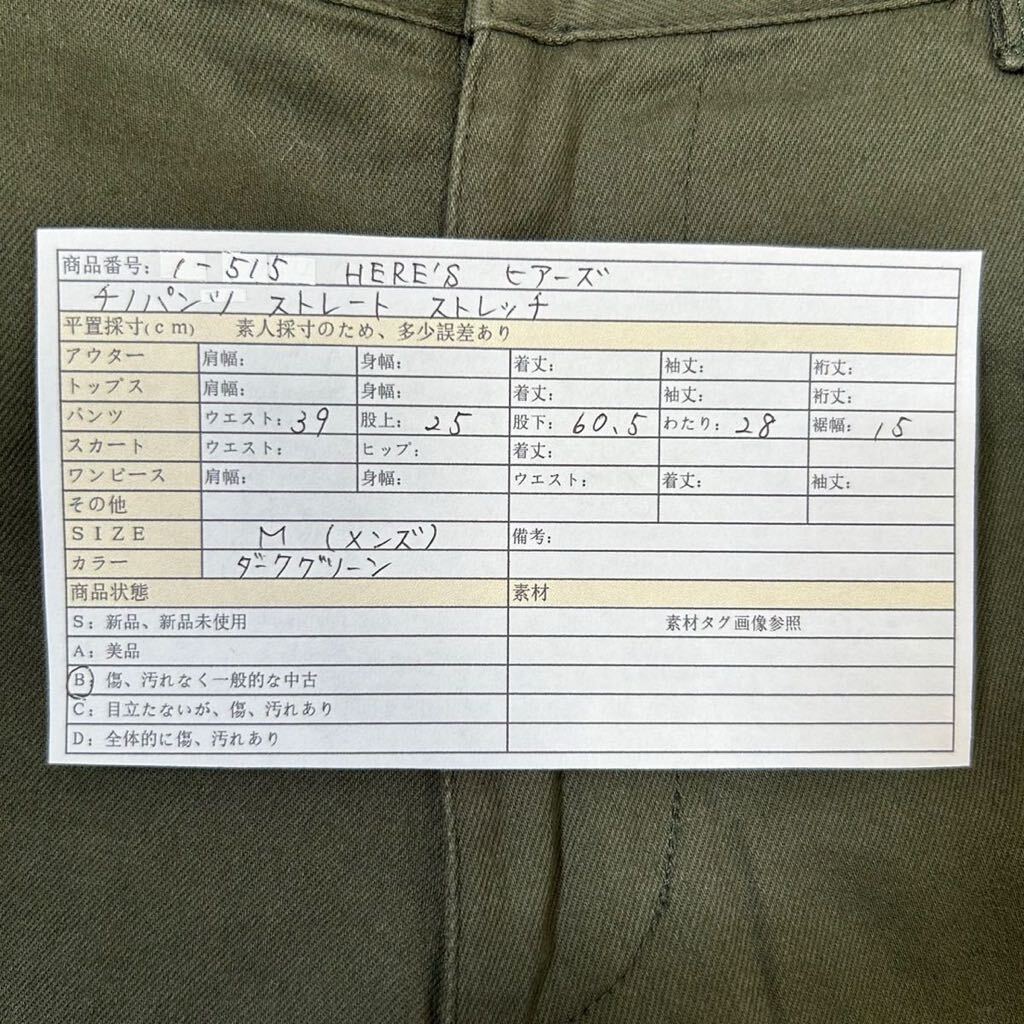 商品番号: 1-515 HERE'S ヒアーズ
チノパンツ ストレート ストレッチ
平置採寸(cm) 素人採寸のため、多少誤差あり
アウター 肩幅: 身幅: 着丈: 袖丈: 裄丈:
トップス 肩幅: 身幅: 着丈: 袖丈: 裄丈:
パンツ ウエスト: 39 股上: 25 股下: 60.5 わたり: 28 裾幅: 15
スカート ウエスト: ヒップ: 着丈:
ワンピース 肩幅: 身幅: ウエスト: 着丈: 袖丈:
その他
SIZE M (メンズ) 備考:
カラー ダークグリーン
商品状態 素材
S: 新品、新品未使用 素材タグ画像参照
A: 美品
B: 傷、汚れなく一般的な中古
C: 目立たないが、傷、汚れあり
D: 全体的に傷、汚れあり